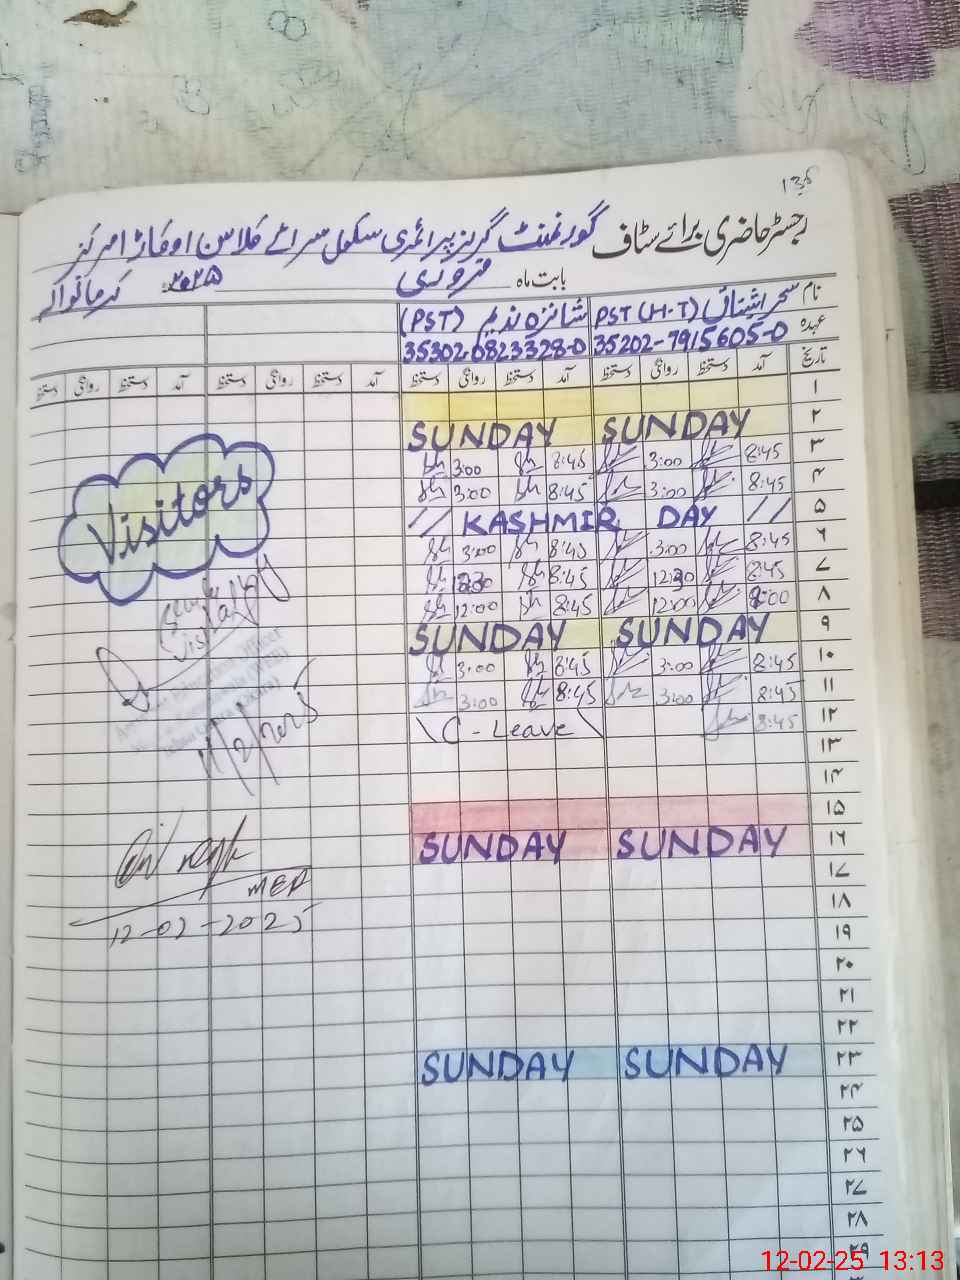 رجسٹر حاضری برائے سٹاف گورنمنٹ گرلز پرائمری سکول سرائے
بابت ماہ فروری ۲۰۲۵
نام (PST) (H.T) PST
عہدہ 35202-7915605-0 35302-6823328-0
تاریخ آمد دستخط روانگی دستخط آمد دستخط روانگی دستخط آمد دستخط روانگی دستخط آمد دستخط روانگی دستخط
۱
۲ SUNDAY SUNDAY
۳ 8:45 3:00 8:45 3:00
۴ 8:45 3:00 8:45 3:00
۵ // KASHMIR DAY //
۶ 8:45 3:00 8:45 3:00
۷ 8:45 12:30 8:45
۸ 12:00 8:45 12:00
۹ SUNDAY SUNDAY
۱۰ 8:45 3:00 8:45 3:00
۱۱ 8:45 3:00 8:45 3:00
۱۲ 8:45 C - Leave
۱۳
۱۴
۱۵
۱۶ SUNDAY SUNDAY
۱۷
۱۸
۱۹
۲۰
۲۱
۲۲
۲۳ SUNDAY SUNDAY
۲۴
۲۵
۲۶
۲۷
۲۸
۲۹
Visitors
11/2/2025
MEA
12-02-2025
12-02-25 13:13